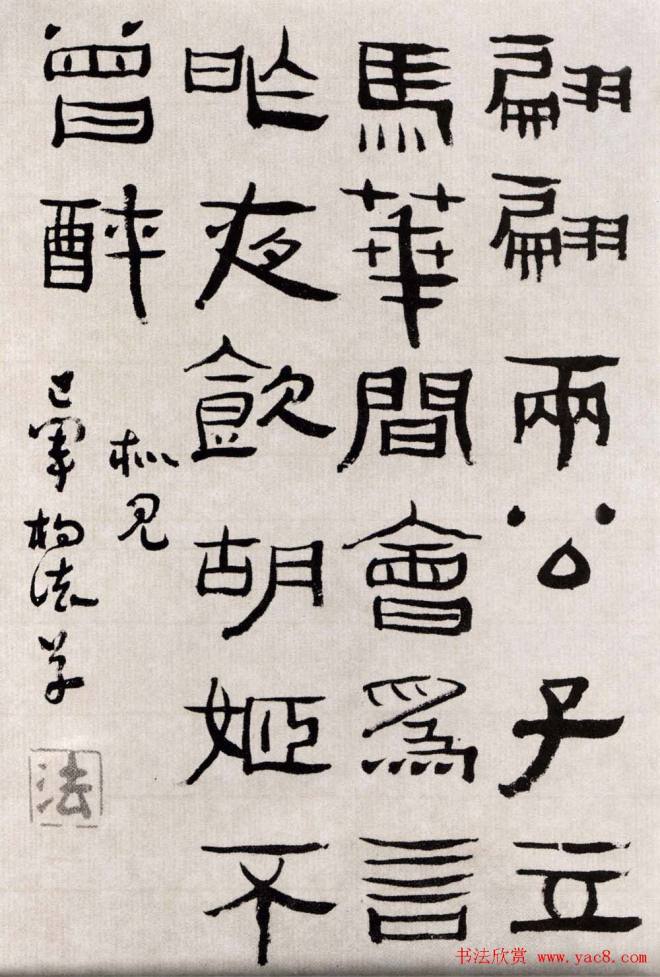 翩翩兩公子立
馬華間會爲言
昨夜飲胡姬不
曾醉
法
书法欣赏 www.yac8.com